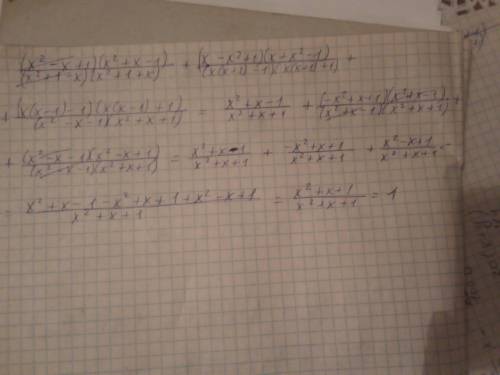 (x² - x + 1)(x² + x - 1) / (x² + 1 - x)(x² + 1 + x) + (x - x² + 1)(x + x² - 1) / (x(x+1) - 1)(x(x+1) + 1) +
+ (x(x-1) - 1)(x(x-1) + 1) / (x² - x - 1)(x² + x + 1) = x² + x - 1 / x² + x + 1 + (-x² + x + 1)(x² + x - 1) / (x² + x - 1)(x² + x + 1) +
+ (x² - x - 1)(x² - x + 1) / (x² - x - 1)(x² + x + 1) = x² + x - 1 / x² + x + 1 + -x² + x + 1 / x² + x + 1 + x² - x + 1 / x² + x + 1 =
= x² + x - 1 - x² + x + 1 + x² - x + 1 / x² + x + 1 = x² + x + 1 / x² + x + 1 = 1